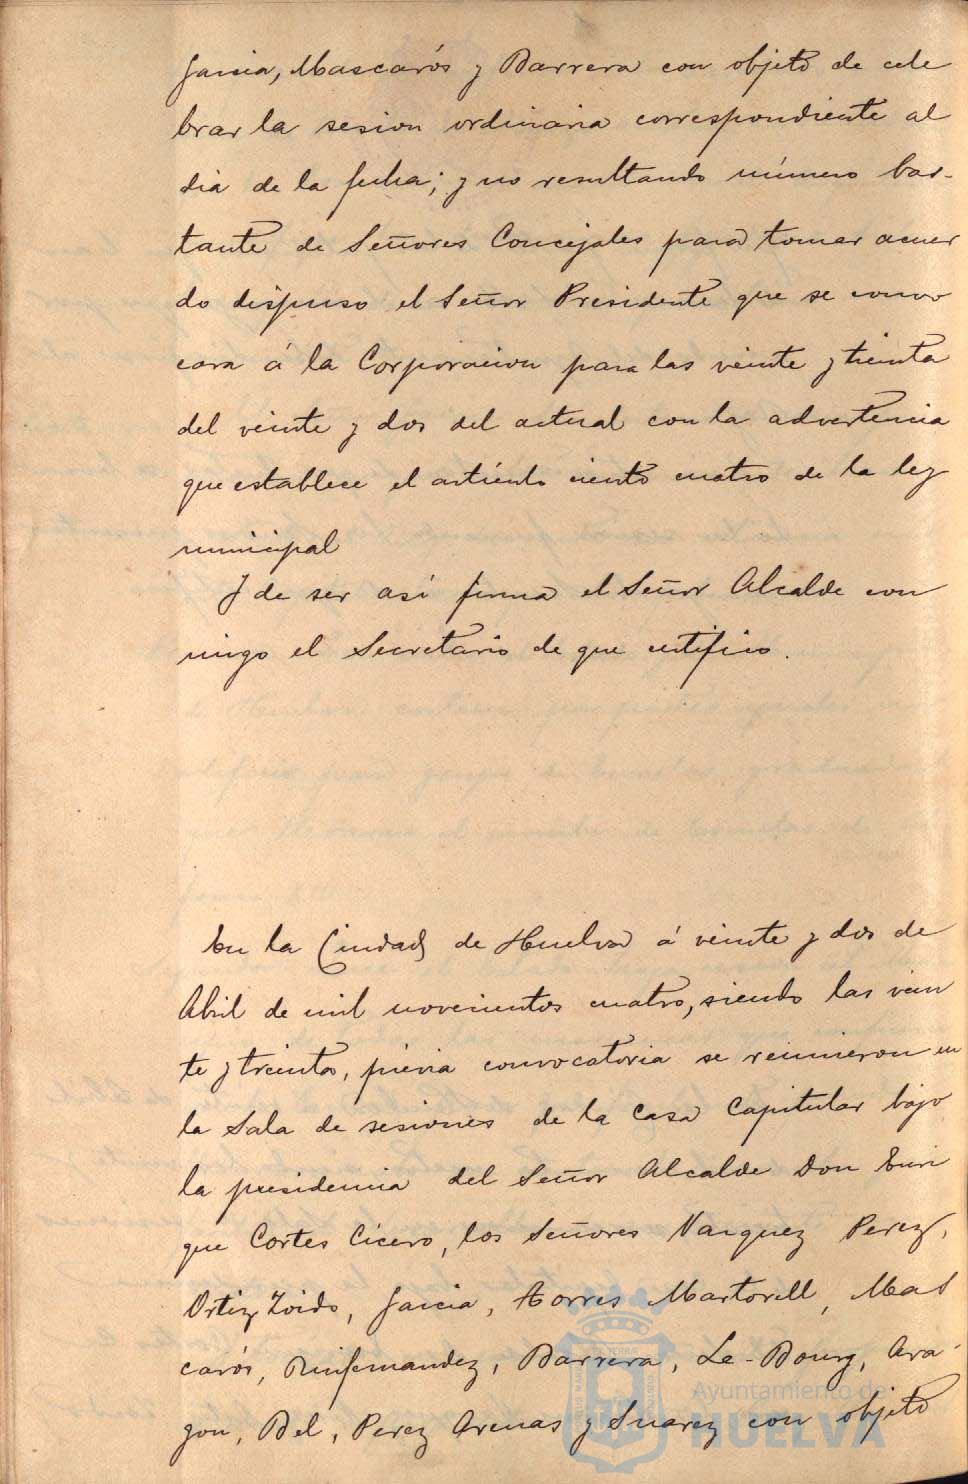 Garcia, Mascarós y Barrera con objeto de cele
brar la sesion ordinaria correspondiente al
dia de la fecha; y no resultando número bas-
tante de Señores Concejales para tomar acuer
do dispuso el Señor Presidente que se convo
cara á la Corporacion para las veinte y treinta
del veinte y dos del actual con la advertencia
que establece el artículo ciento cuatro de la ley
municipal
Y de ser así firma el Señor Alcalde con
migo el Secretario de que certifico.
En la Ciudad de Huelva á veinte y dos de
Abril de mil novecientos cuatro, siendo las vein
te y treinta, prévia convocatoria se reunieron en
la Sala de sesiones de la Casa Capitular bajo
la presidencia del Señor Alcalde Don Enri
que Cortes Cicero, los Señores Vazquez Perez,
Ortiz Zoido, Garcia, Torres Martorell, Mas
carós, Ruifernandez, Barrera, Le-Bourg, Ara
gon, Bel, Perez Arenas y Suarez con objeto
Ayuntamiento de
HUELVA